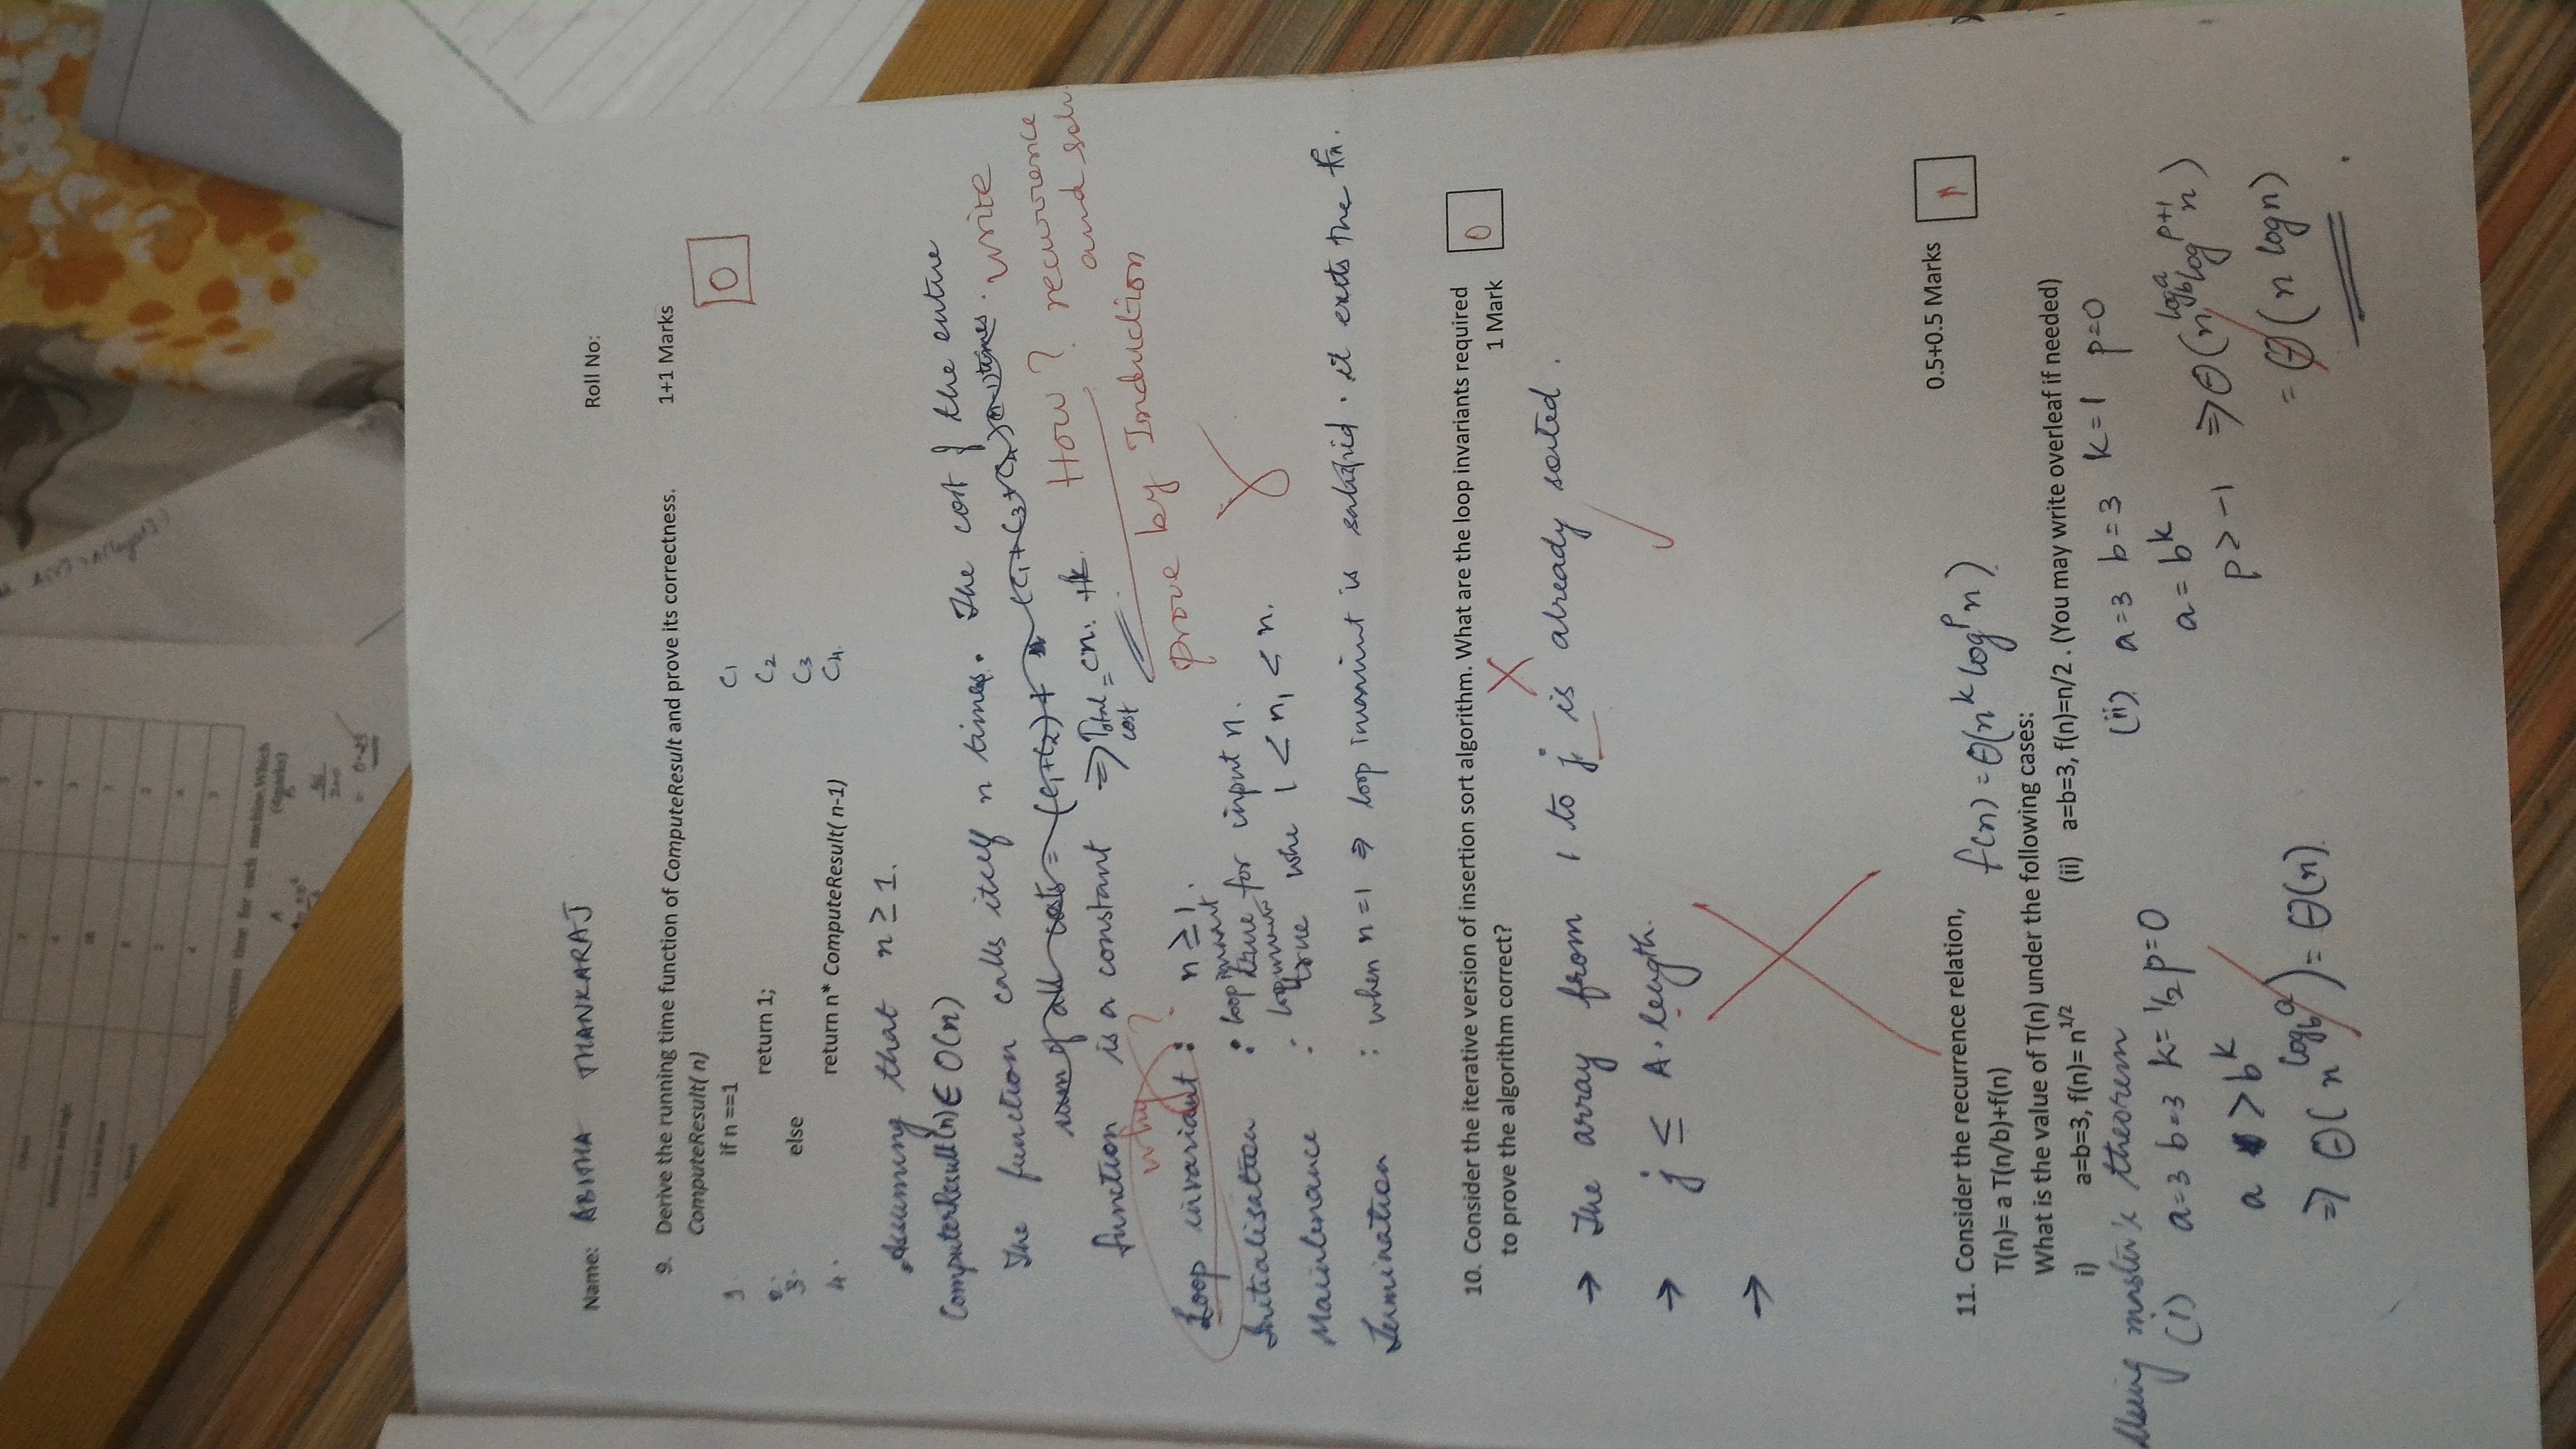 Name: ABITHA THANKARAJ Roll No:
9. Derive the running time function of ComputeResult and prove its correctness. 1+1 Marks
0
ComputeResult( n)
1. if n ==1 C1
2. return 1; C2
3. else C3
4. return n* ComputeResult( n-1) C4.
Assuming that n ≥ 1.
ComputerResult(n) ∈ O(n)
The function calls itself n times. The cost of the entire
sum of all costs = (c1+c2) + (c1+c3+c4)(n-1) times. write
function is a constant ⇒ Total cost = cn. + k. How? recurrence and solv
why? Prove by Induction
Loop invariant : n ≥ 1.
Initialisation : loop invariant true for input n.
Maintenance : loop invariant true whe 1 < n1 < n.
Termination : when n = 1 ⇒ loop invariant is satisfied. it exits the fn.
10. Consider the iterative version of insertion sort algorithm. What are the loop invariants required
to prove the algorithm correct? 1 Mark 0
→ The array from 1 to j is already sorted.
→ j ≤ A.length.
→
11. Consider the recurrence relation, 0.5+0.5 Marks 1
T(n)= a T(n/b)+f(n) f(n) = θ(n^k log^p n)
What is the value of T(n) under the following cases:
i) a=b=3, f(n)= n^1/2 (ii) a=b=3, f(n)=n/2 . (You may write overleaf if needed)
Using master's theorem
(i) a=3 b=3 k=1/2 p=0 (ii) a=3 b=3 k=1 p=0
a > b^k a = b^k
p > -1 ⇒ θ(n^log_b a log^p+1 n)
⇒ θ(n^log_b a) = θ(n). = θ(n log n)